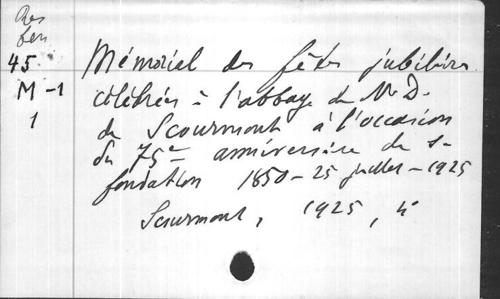 Res
fen
45
M-1
1
Mémorial des fêtes jubilaires
célébrées à l'abbaye de N. D.
de Scourmont à l'occasion
du 75e anniversaire de s-
fondation 1850-25 juillet-1925
Scourmont, 1925, 4°